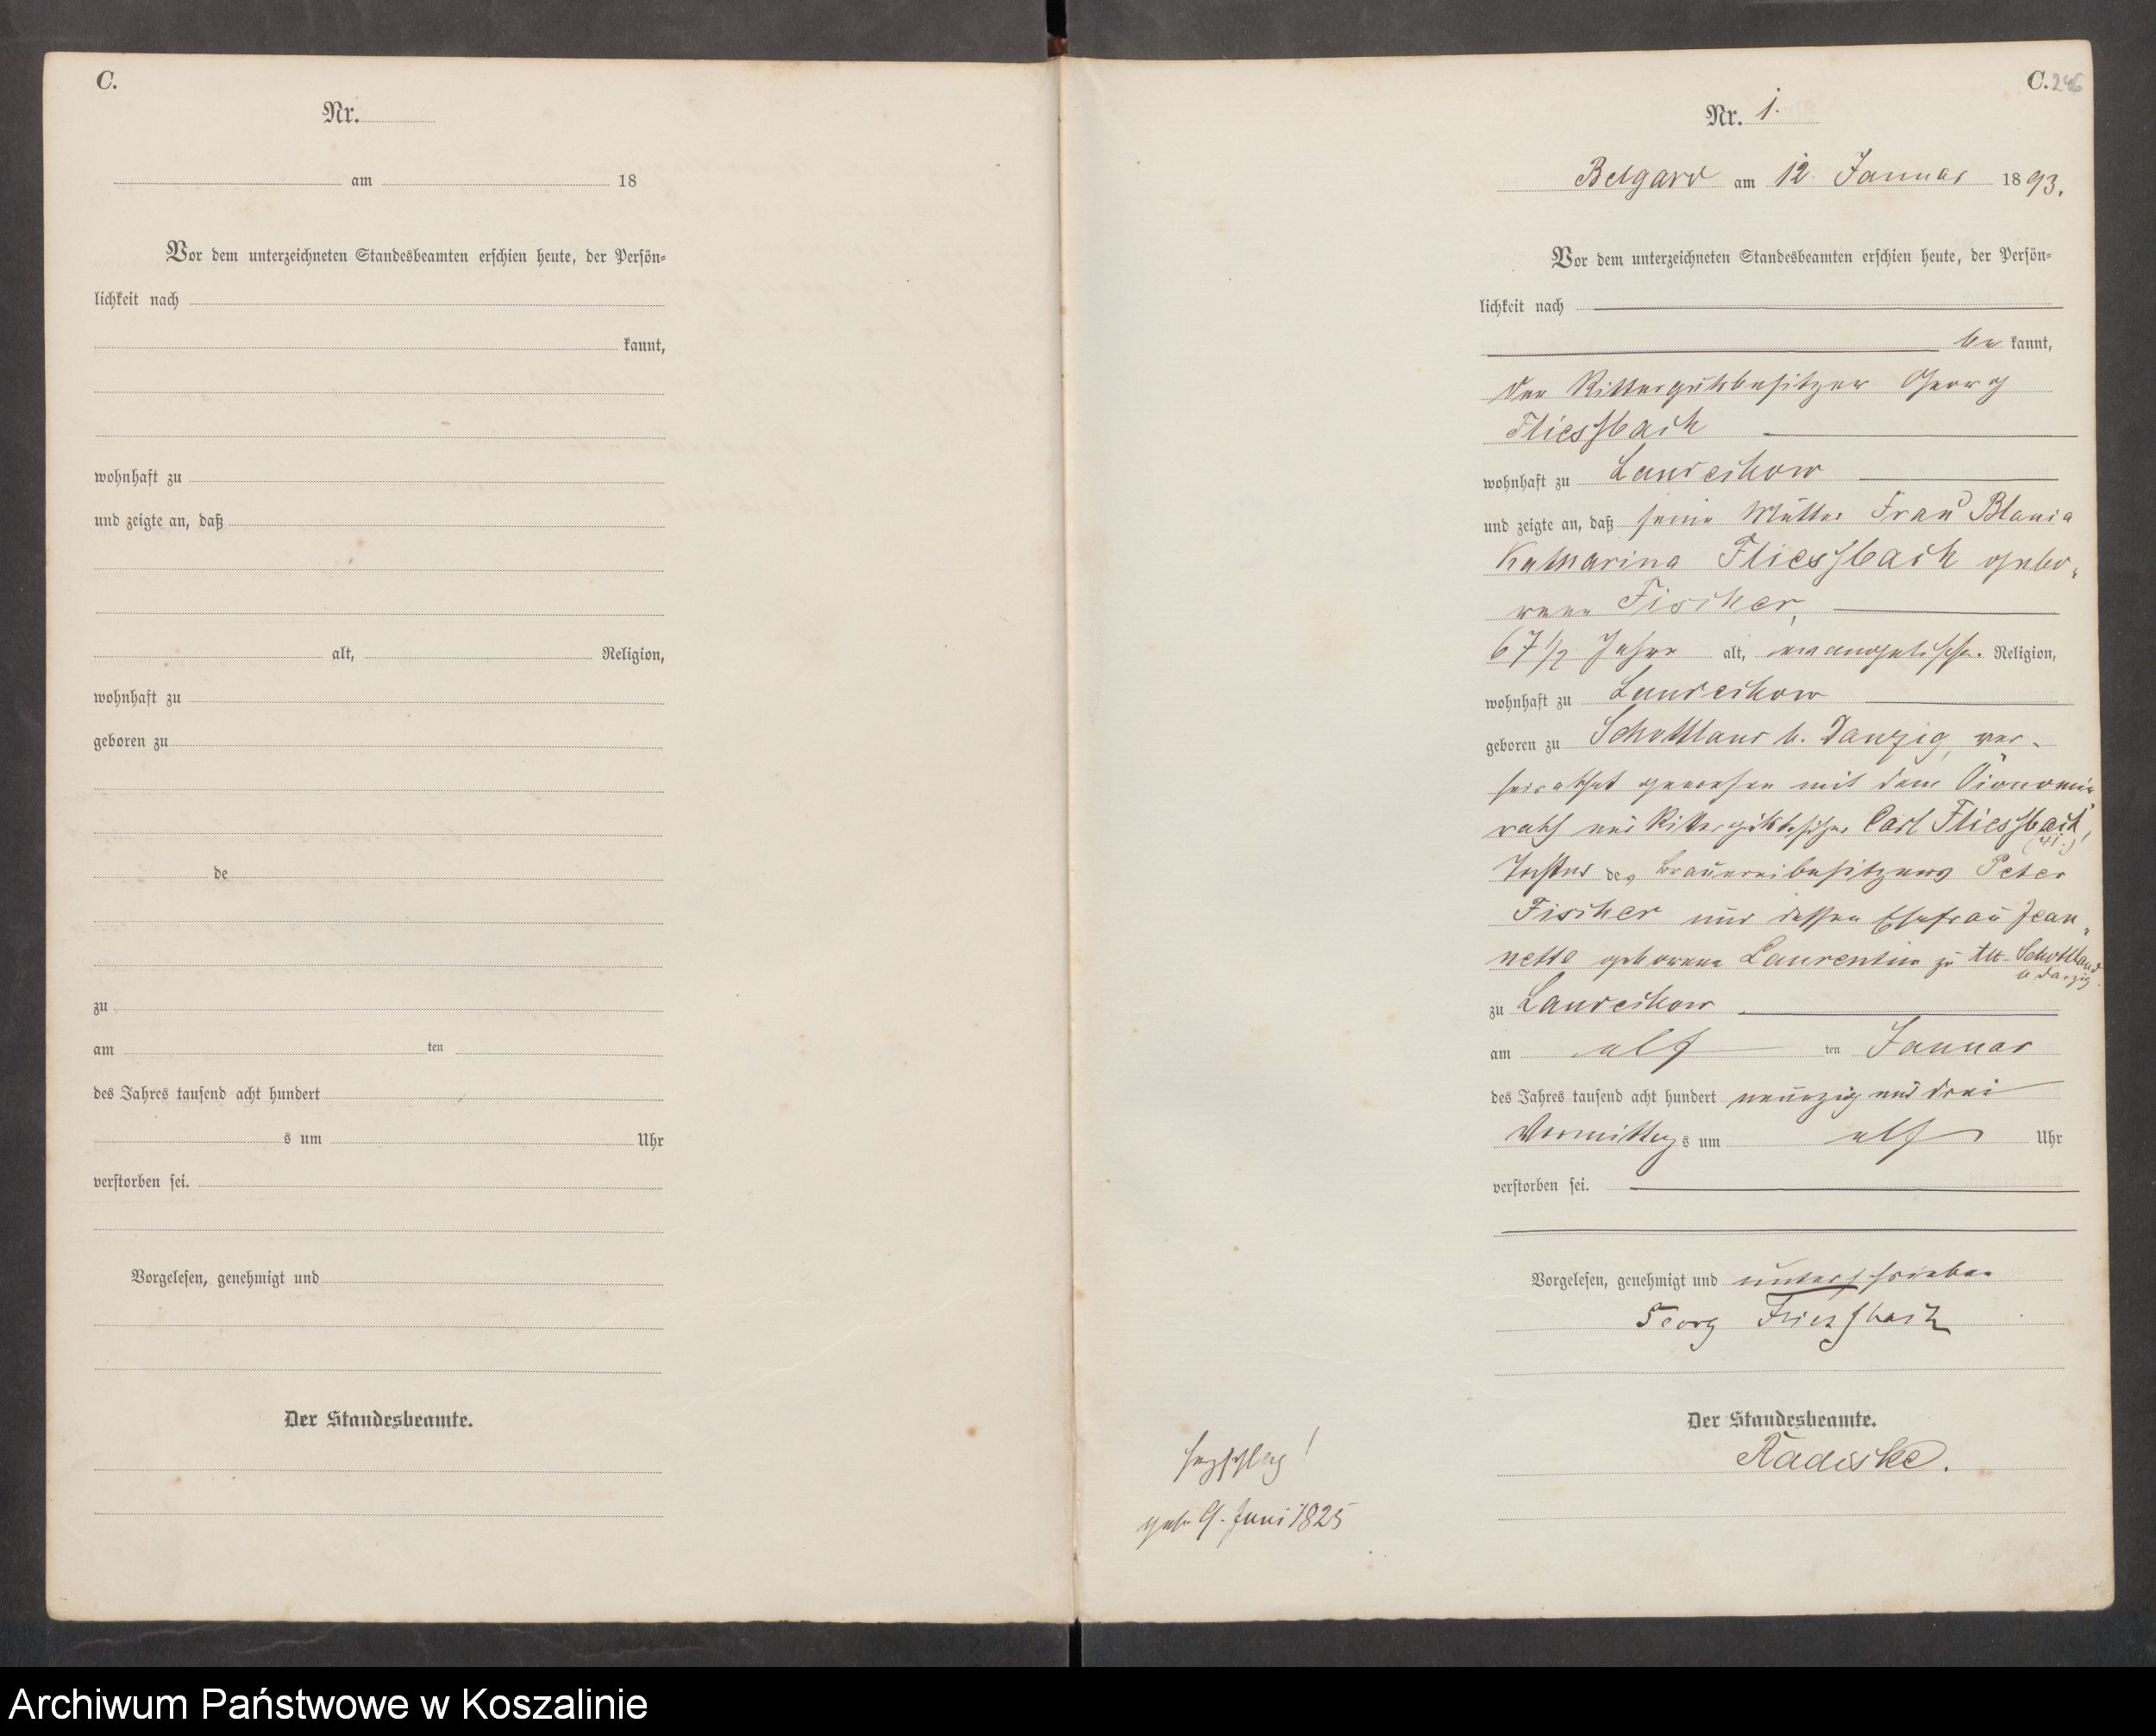 C.
Nr.
am 18
Vor dem unterzeichneten Standesbeamten erschien heute, der Persön-
lichkeit nach
kannt,
wohnhaft zu
und zeigte an, daß
alt, Religion,
wohnhaft zu
geboren zu
de
zu
am ten
des Jahres tausend acht hundert
s um Uhr
verstorben sei.
Vorgelesen, genehmigt und
Der Standesbeamte.
C. 246
Nr. 1.
Belgard am 12. Januar 1893.
Vor dem unterzeichneten Standesbeamten erschien heute, der Persön-
lichkeit nach
be kannt,
der Rittergutsbesitzer Georg
Fliessbach
wohnhaft zu Landechow
und zeigte an, daß seine Mutter Frau
Katharina Fliessbach gebo-
rene Fischer,
67 1/2 Jahre alt, evangelischer Religion,
wohnhaft zu Landechow
geboren zu Schottland b. Danzig, ver-
heirathet gewesen mit dem Öconomie
rath und Rittergutsbesitzer Carl Fliessbach,
Tochter des Brauereibesitzers Peter
Fischer und dessen Ehefrau Jean-
nette geborene Laurentin zu Alt-Schottland
b Danzig.
zu Landechow
am elf ten Januar
des Jahres tausend acht hundert neunzig und drei
Vormittags um elf Uhr
verstorben sei.
Vorgelesen, genehmigt und unterschrieben
Georg Fliessbach
Der Standesbeamte.
Radiske.
Herzschlag!
geb. 9. Juni 1825
Archiwum Państwowe w Koszalinie